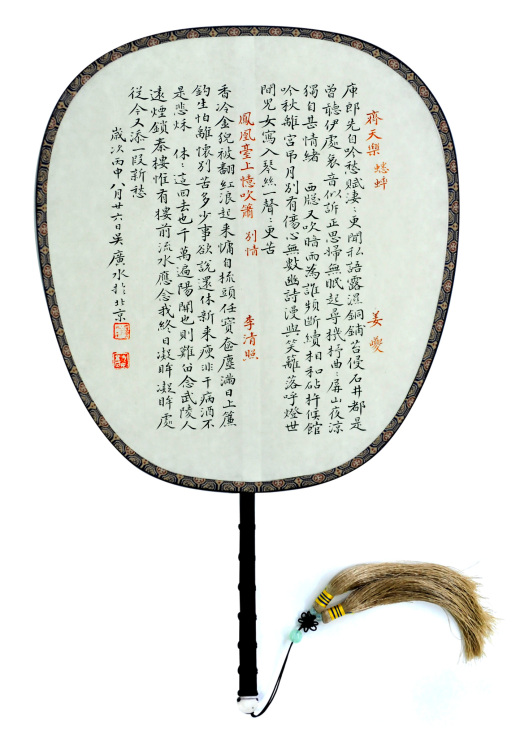 齊天樂 蟋蟀 姜夔
庾郎先自吟愁賦凄〻更聞私語露濕銅鋪苔侵石井都是
曾聽伊處哀音似訴正思婦無眠起尋機杼曲屏山夜涼
獨自甚情緒 西牕又吹暗雨為誰頻斷續相和砧杵候館
吟秋離宮弔月別有傷心無數豳詩漫與笑籬落呼燈世
間兒女寫入琴絲一聲〻更苦
鳳凰臺上憶吹簫 別情 李清照
香冷金猊被翻紅浪起來慵自梳頭任寶奩塵滿日上簾
鈎生怕離懷別苦多少事欲說還休新來瘦非干病酒不
是悲秌 休〻這回去也千萬遍陽關也則難留念武陵人
遠煙鎖秦樓惟有樓前流水應念我終日凝眸凝眸處
從今又添一段新愁
歲次丙申八月廿六日吳廣水於北京